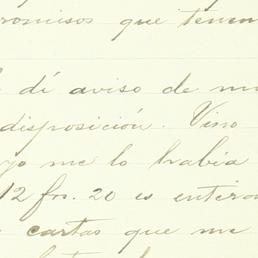 romisos que tenem
dí aviso de mi
disposición. Vino
yo me lo habia
12 frs. 20 es entera
cartas que me